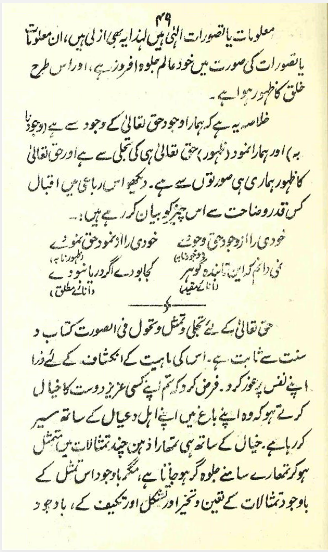 ۴۹
معلومات یا تصورات الٰہی ہیں لہٰذا یہ بھی ازلی ہیں، ان معلومات
یا تصورات کی صورت میں خود عالم جلوہ افروز ہے، اور اس طرح
خلق کا ظہور ہوا ہے۔
خلاصہ یہ ہے کہ ہمارا وجود حق تعالیٰ کے وجود سے ہے (وجودنا
بہ) اور ہمارا نمود (ظہور) حق تعالیٰ ہی کی تجلی سے ہے اور حق تعالیٰ
کا ظہور ہماری ہی صورتوں سے ہے۔ دیکھو اس رباعی میں اقبال
کس قدر وضاحت سے اس چیز کو بیان کر رہے ہیں:۔
خودی را از وجودِ حق وجودے خودی را از نمودِ حق نمودے
(وجودنا بہ) (ظہورنا بہ)
نمی دانم کہ ایں تابندہ گوہر کجا بودے اگر دریا نبودے
(انائے مقید) (انائے مطلق)
حق تعالیٰ کے لئے تجلی و تمثل و تحول فی الصورت کتاب و
سنت سے ثابت ہے۔ اس کی ماہیت کے انکشاف کے لئے ذرا
اپنے نفس پر غور کرو۔ فرض کرو کہ تم اپنے کسی عزیز دوست کا خیال
کرتے ہو کہ وہ اپنے باغ میں اپنے اہل و عیال کے ساتھ سیر
کر رہا ہے۔ خیال کے ساتھ ہی تمھارا ذہن چند تمثالات میں متمثل
ہو کر تمھارے سامنے جلوہ گر ہو جاتا ہے، مگر باوجود اس تمثل کے
باوجود تمثالات کے تعین و تحیز اور تشکل اور تکیف کے، باوجود